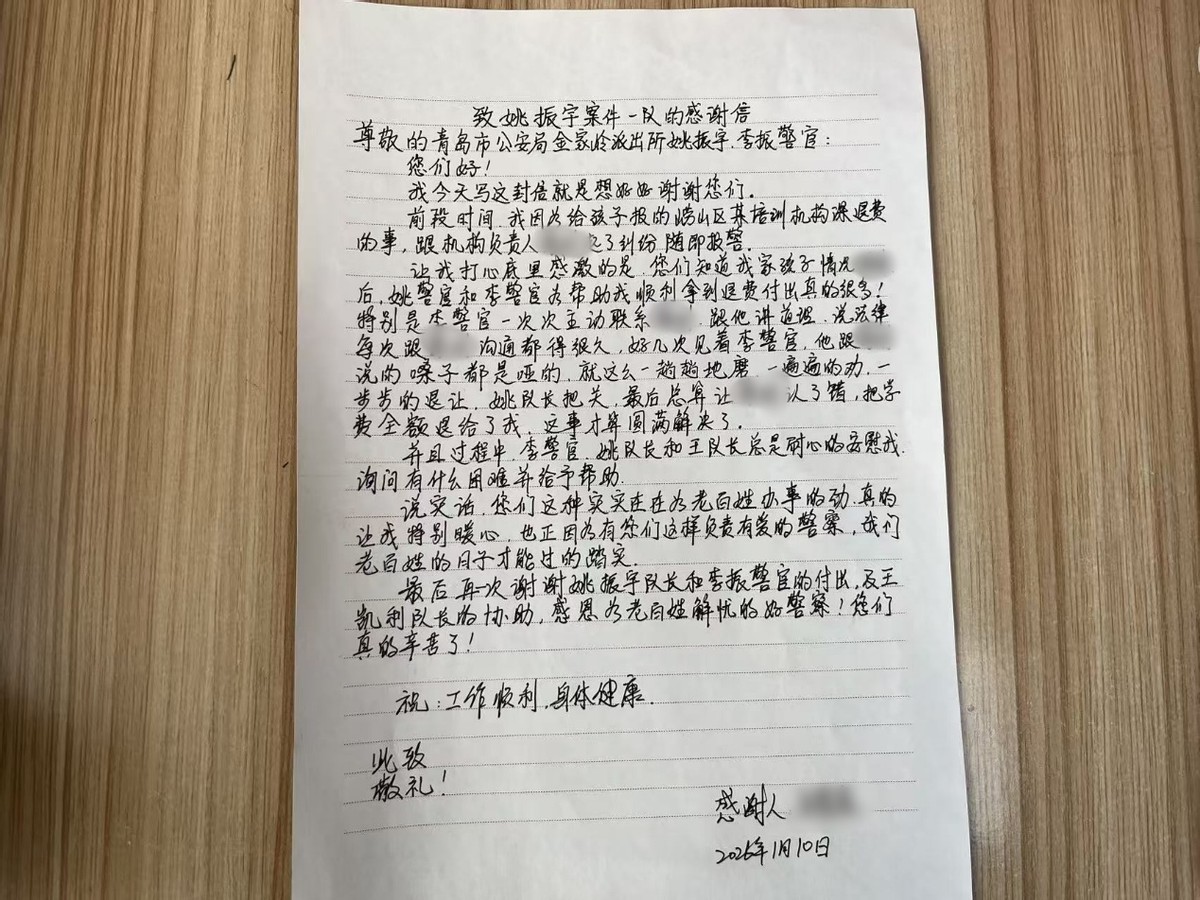 致姚振宇案件一队的感谢信
尊敬的青岛市公安局金家岭派出所姚振宇.李振警官：
您们好！
我今天写这封信就是想好好谢谢您们.
前段时间.我因为给孩子报的崂山区某培训机构课退费
的事,跟机构负责人 起了纠纷随即报警.
让我打心底里感激的是.您们知道我家孩子情况
后,姚警官和李警官为帮助我顺利拿到退费付出真的很多！
特别是李警官一次次主动联系 .跟他讲道理.说法律
每次跟 沟通都得很久,好几次见着李警官,他跟
说的嗓子都是哑的.就这么一趟趟地磨.一遍遍的劝.一
步步的退让.姚队长把关,最后总算让 认了错,把学
费全额退给了我.这事才算圆满解决了.
并且过程中.李警官.姚队长和王队长总是耐心的安慰我.
询问有什么困难并给予帮助.
说实话.您们这种实实在在为老百姓办事的劲.真的
让我特别暖心.也正因为有您们这样负责有爱的警察,我们
老百姓的日子才能过的踏实.
最后再次谢谢姚振宇队长和李振警官的付出,及王
凯利队长的协助,感恩为老百姓解忧的好警察！您们
真的辛苦了！
祝：工作顺利.身体健康.
此致
敬礼！
感谢人
2026年1月10日